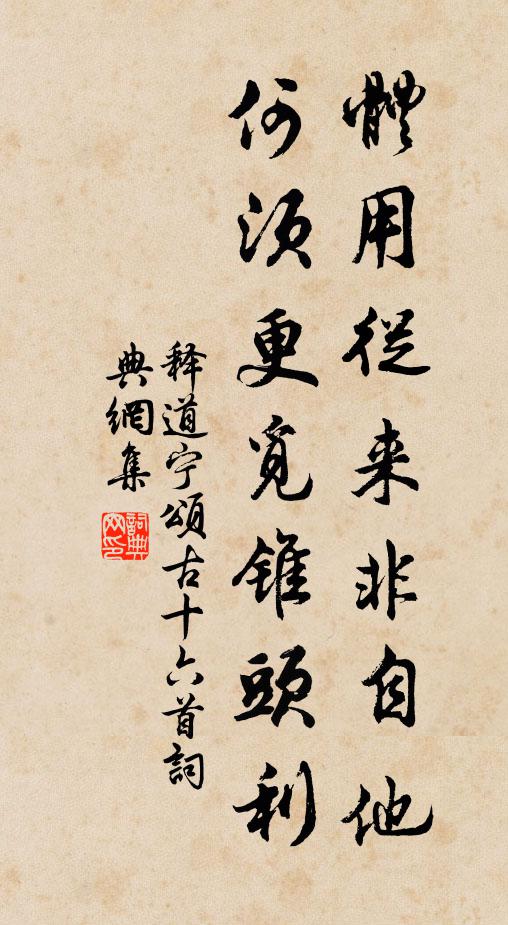 體用從来非自他
何須更覓錐頭利
释道宁頌古十六首詞
典網集
詞典
网印